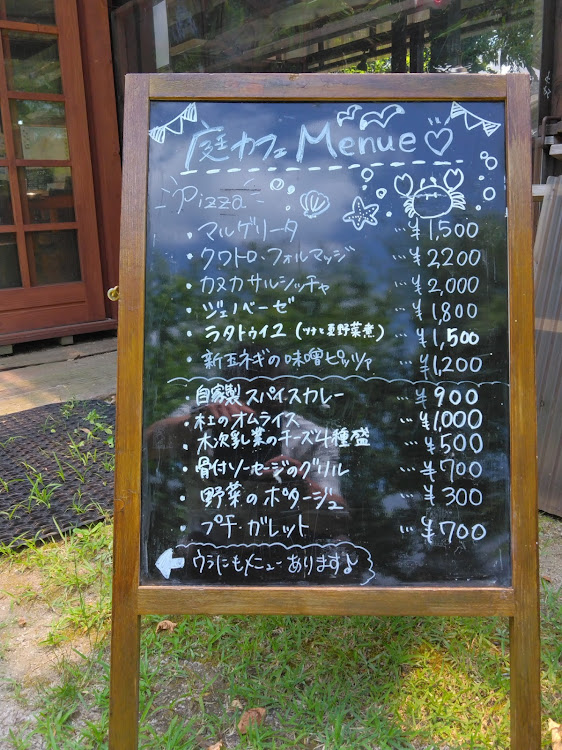 庭カフェ Menue
Pizza
・マルゲリータ …¥1,500
・クワトロ・フォルマッジ …¥2,200
・カヌカサルシッチャ …¥2,000
・ジェノベーゼ …¥1,800
・ラタトゥイユ (ツナと夏野菜煮) …¥1,500
・新玉ネギの味噌ピッツァ …¥1,200
・自家製スパイスカレー …¥900
・杜のオムライス …¥1,000
・木次乳業のチーズ4種盛 …¥500
・骨付ソーセージのグリル …¥700
・野菜のポタージュ …¥300
・プチガレット …¥700
← ウラにもメニューあります♪